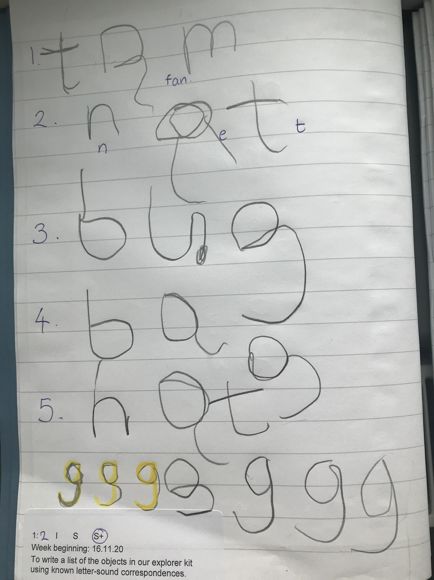 1. t a m
fan
2. n a t
n e t
3. b u g
4. b a g
5. h a t
g g g g g g g
1:2 I S S+
Week beginning: 16.11.20
To write a list of the objects in our explorer kit
using known letter-sound correspondences.